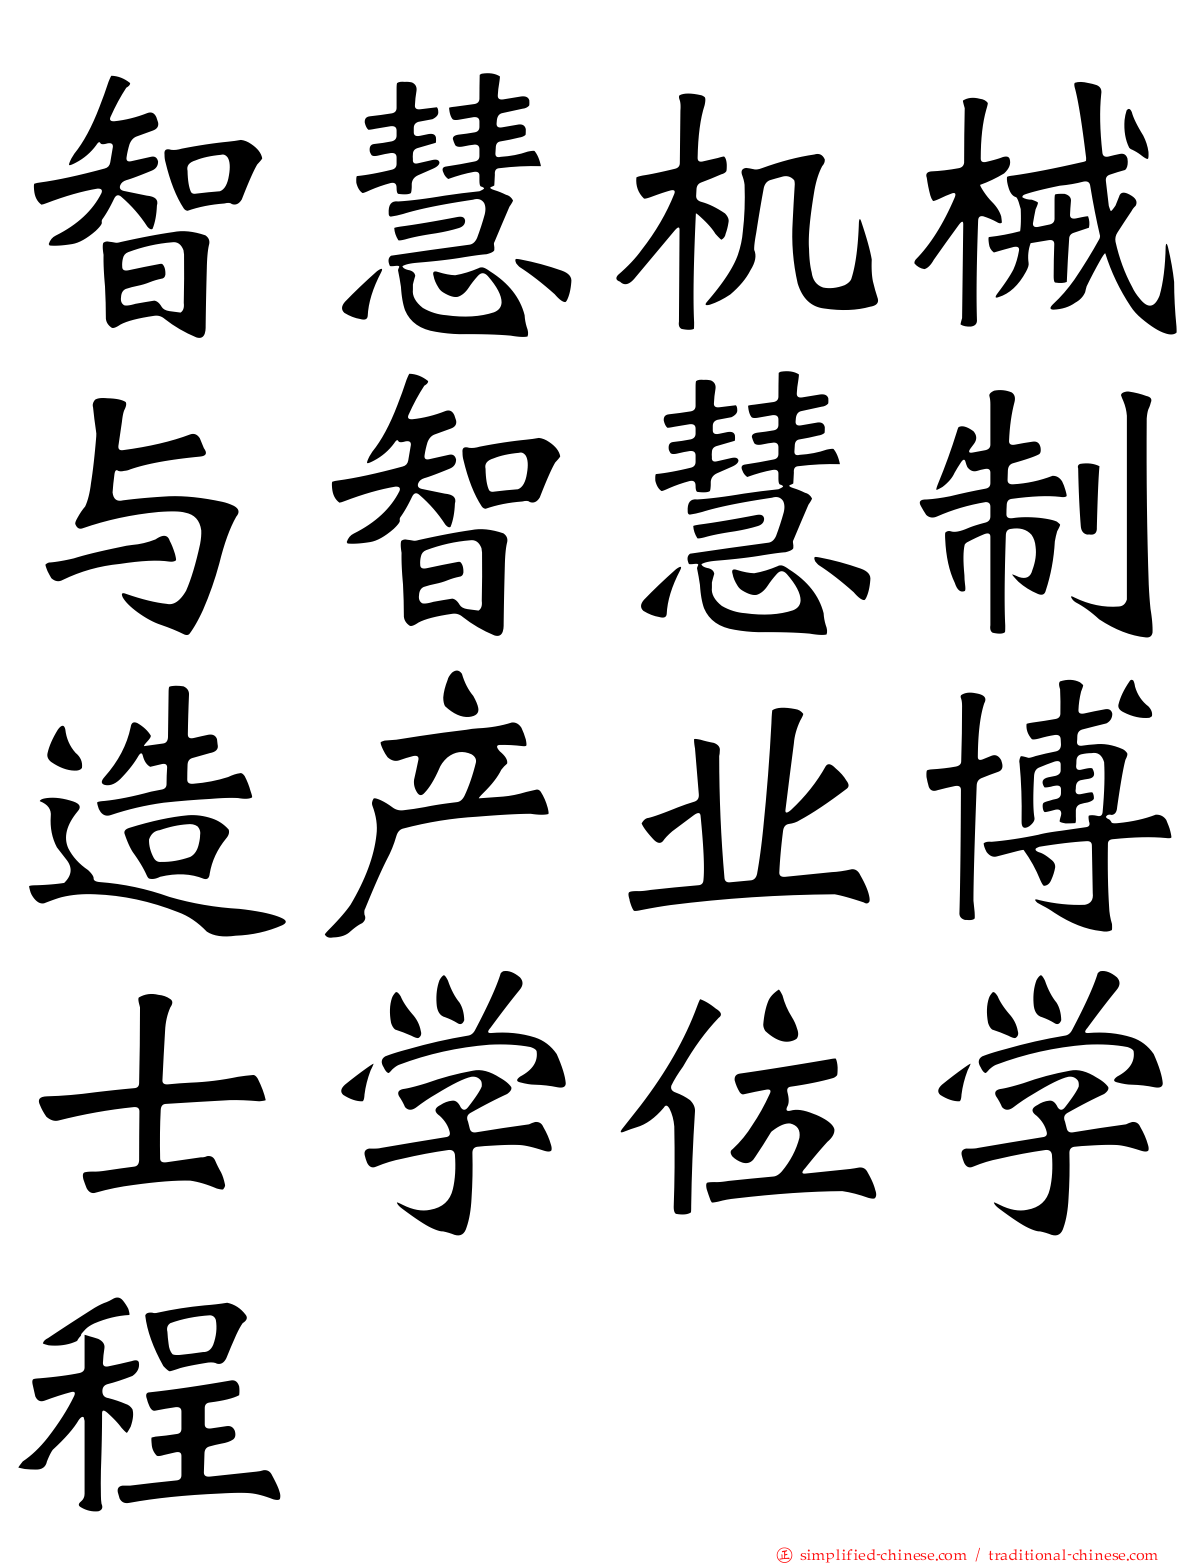 智慧机械
与智慧制
造产业博
士学位学
程
正 simplified-chinese.com / traditional-chinese.com